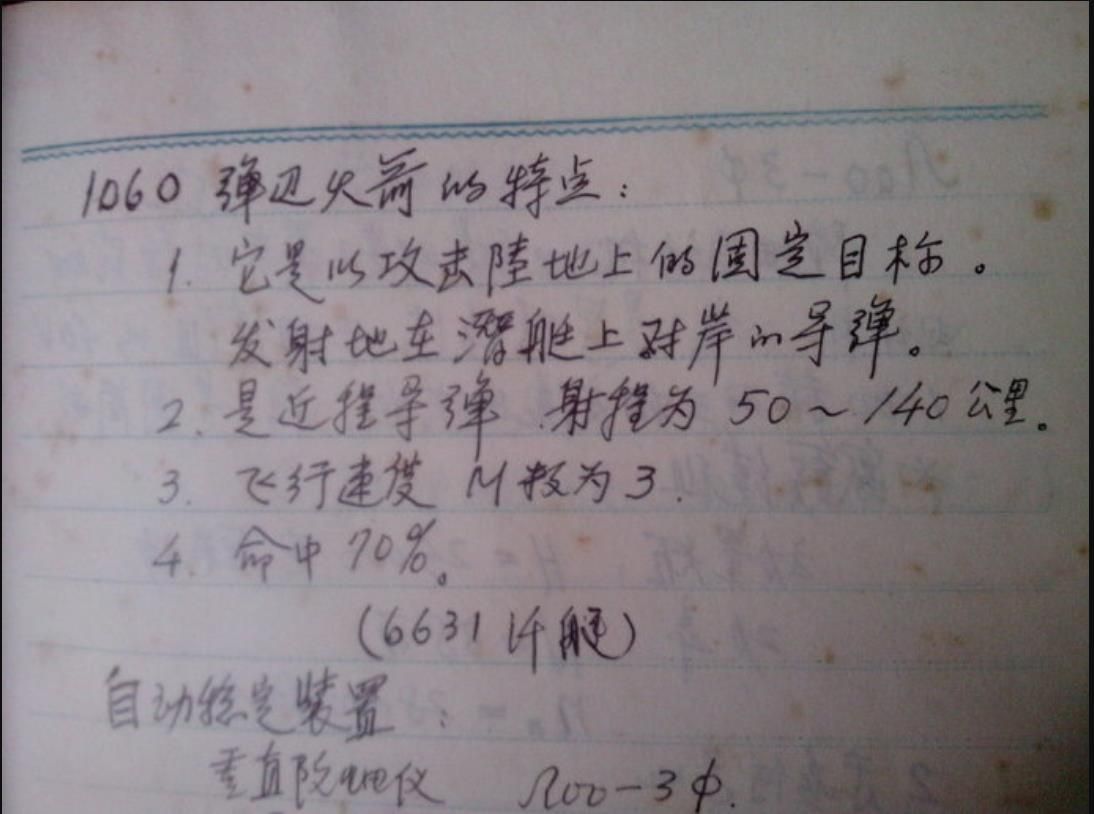 1060 弹道火箭的特点:
1. 它是以攻击陸地上的固定目标。
发射地在潛艇上对岸的导弹。
2. 是近程导弹 射程为 50~140公里。
3. 飞行速度 M数为3.
4. 命中 70%。
(6631 潜艇)
自动稳定装置:
垂直陀螺仪